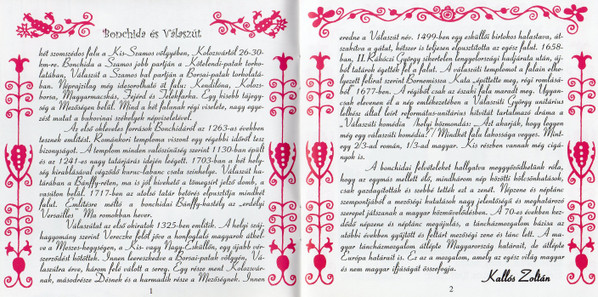 Bonchida és Válaszút
két szomszédos falu a Kis-Szamos völgyében, Kolozsvártól 26-30
km-re. Bonchida a Szamos jobb partján a Kötelendi-patak torko-
latában, Válaszút a Szamos bal partján a Borsai-patak torkolatá-
ban. Néprajzilag még idesorolható öt falu: Kendilóna, Kolozs-
borsa, Magyarmacskás, Fejérd és Telekfarka. Egy kisebb tájegy-
ség a Mezőségen belül. Mind a két falunak régi viselete, nagy egye-
zést mutat a bukovinai székelyek népviseletével.
Az első okleveles források Bonchidáról az 1263-as években
tesznek említést. Románkori temploma viszont egy régebbi időről tesz
bizonyságot. A templom minden valószínűség szerint 1130-ban épült
és az 1241-es nagy tatárjárás idején leégett. 1703-ban a két hely-
ség hírabdásával végződő kuruc-labanc csata színhelye. Válaszút ha-
tárában a Bánffy-réten, ma is jól kivehető a támaszért jelző domb, a
vasúton belül. 1717-ben az utolsó tatár betörés elpusztítja mindkét
falut. Említésre méltó a bonchidai Bánffy-kastély az „erdélyi
Versailles". Ma romokban hever.
Válaszútat az első okiratok 1325-ben említik. A helyi száj-
hagyomány szerint Verecze felől jöve a honfoglaló magyarok áthal-
ve a Meszes-hegységen, a Kis- vagy Nagy-Esküllőn, egy újabb vér-
szerződést kötöttek. Innen leereszkedve a Borsai-patak völgyén, Vá-
laszútra érve, három felé vált a sereg. Egy része ment Kolozsvár-
nak, másodrésze Désnek és a harmadik része a Mezőségnek. Innen
1
eredne a Válaszút név. 1499-ben egy esküllői birtokos halastava, át-
szakítva a gátat, kétszer is teljesen elpusztította az egész falut. 1658-
ban, II. Rákóczi György sikertelen lengyelországi hadjárata után, új-
ból tatárok égették fel a falut. A válaszúti templomot a falun kívül
fekvő helyéről szerint Bornemissza Kata építtette meg, régi romlásá-
ból 1677-ben. A régiből csak az északi fala maradt meg. Ugyan-
csak elevenen él a nép emlékezetében a Válaszúti György unitárius
lelkész által leírt református-unitárius hitvitát tartalmazó dráma a
„Válaszúti komédia". helyi bármondás: „Azt akarják, hogy legyen
még egy válaszúti komédia?" Mindkét falu lakossága vegyes. Mint-
egy 2/3-ad román, 1/3-ad magyar. Kis részben vannak még cigá-
nyok is.
A bonchidai felvételeket hallgatva meggyőződhetünk róla,
hogy az egymás mellett élő, mindhárom nép közötti kölcsönhatások,
csak gazdagították és szebbé tették ezt a zenét. Népzene és néptánc
szempontjából a mezőségi kutatások nagy jelentőségű és meghatározó
szerepet játszanak a magyar közművelődésben. A 70-es években kez-
dődő népzene és néptánc mozgalom, a táncházmozgalom bázisa az
utóbbi években gyűjtött és feltárt mezőségi zene és tánc lett. A ma-
gyar táncházmozgalom átlépte Magyarország határait, de átlépte
Európa határait is. Ez az a mozgalom, amely az egész világ magyar
és nem magyar ifjúságát összefogja.
Kallós Zoltán
2